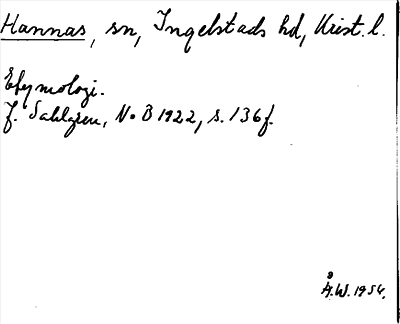 Hannas, sn, Ingelstads hd, Krist. l.
Etymologi.
J. Sahlgren, NoB 1922, s. 136f.
Å.W. 1954.